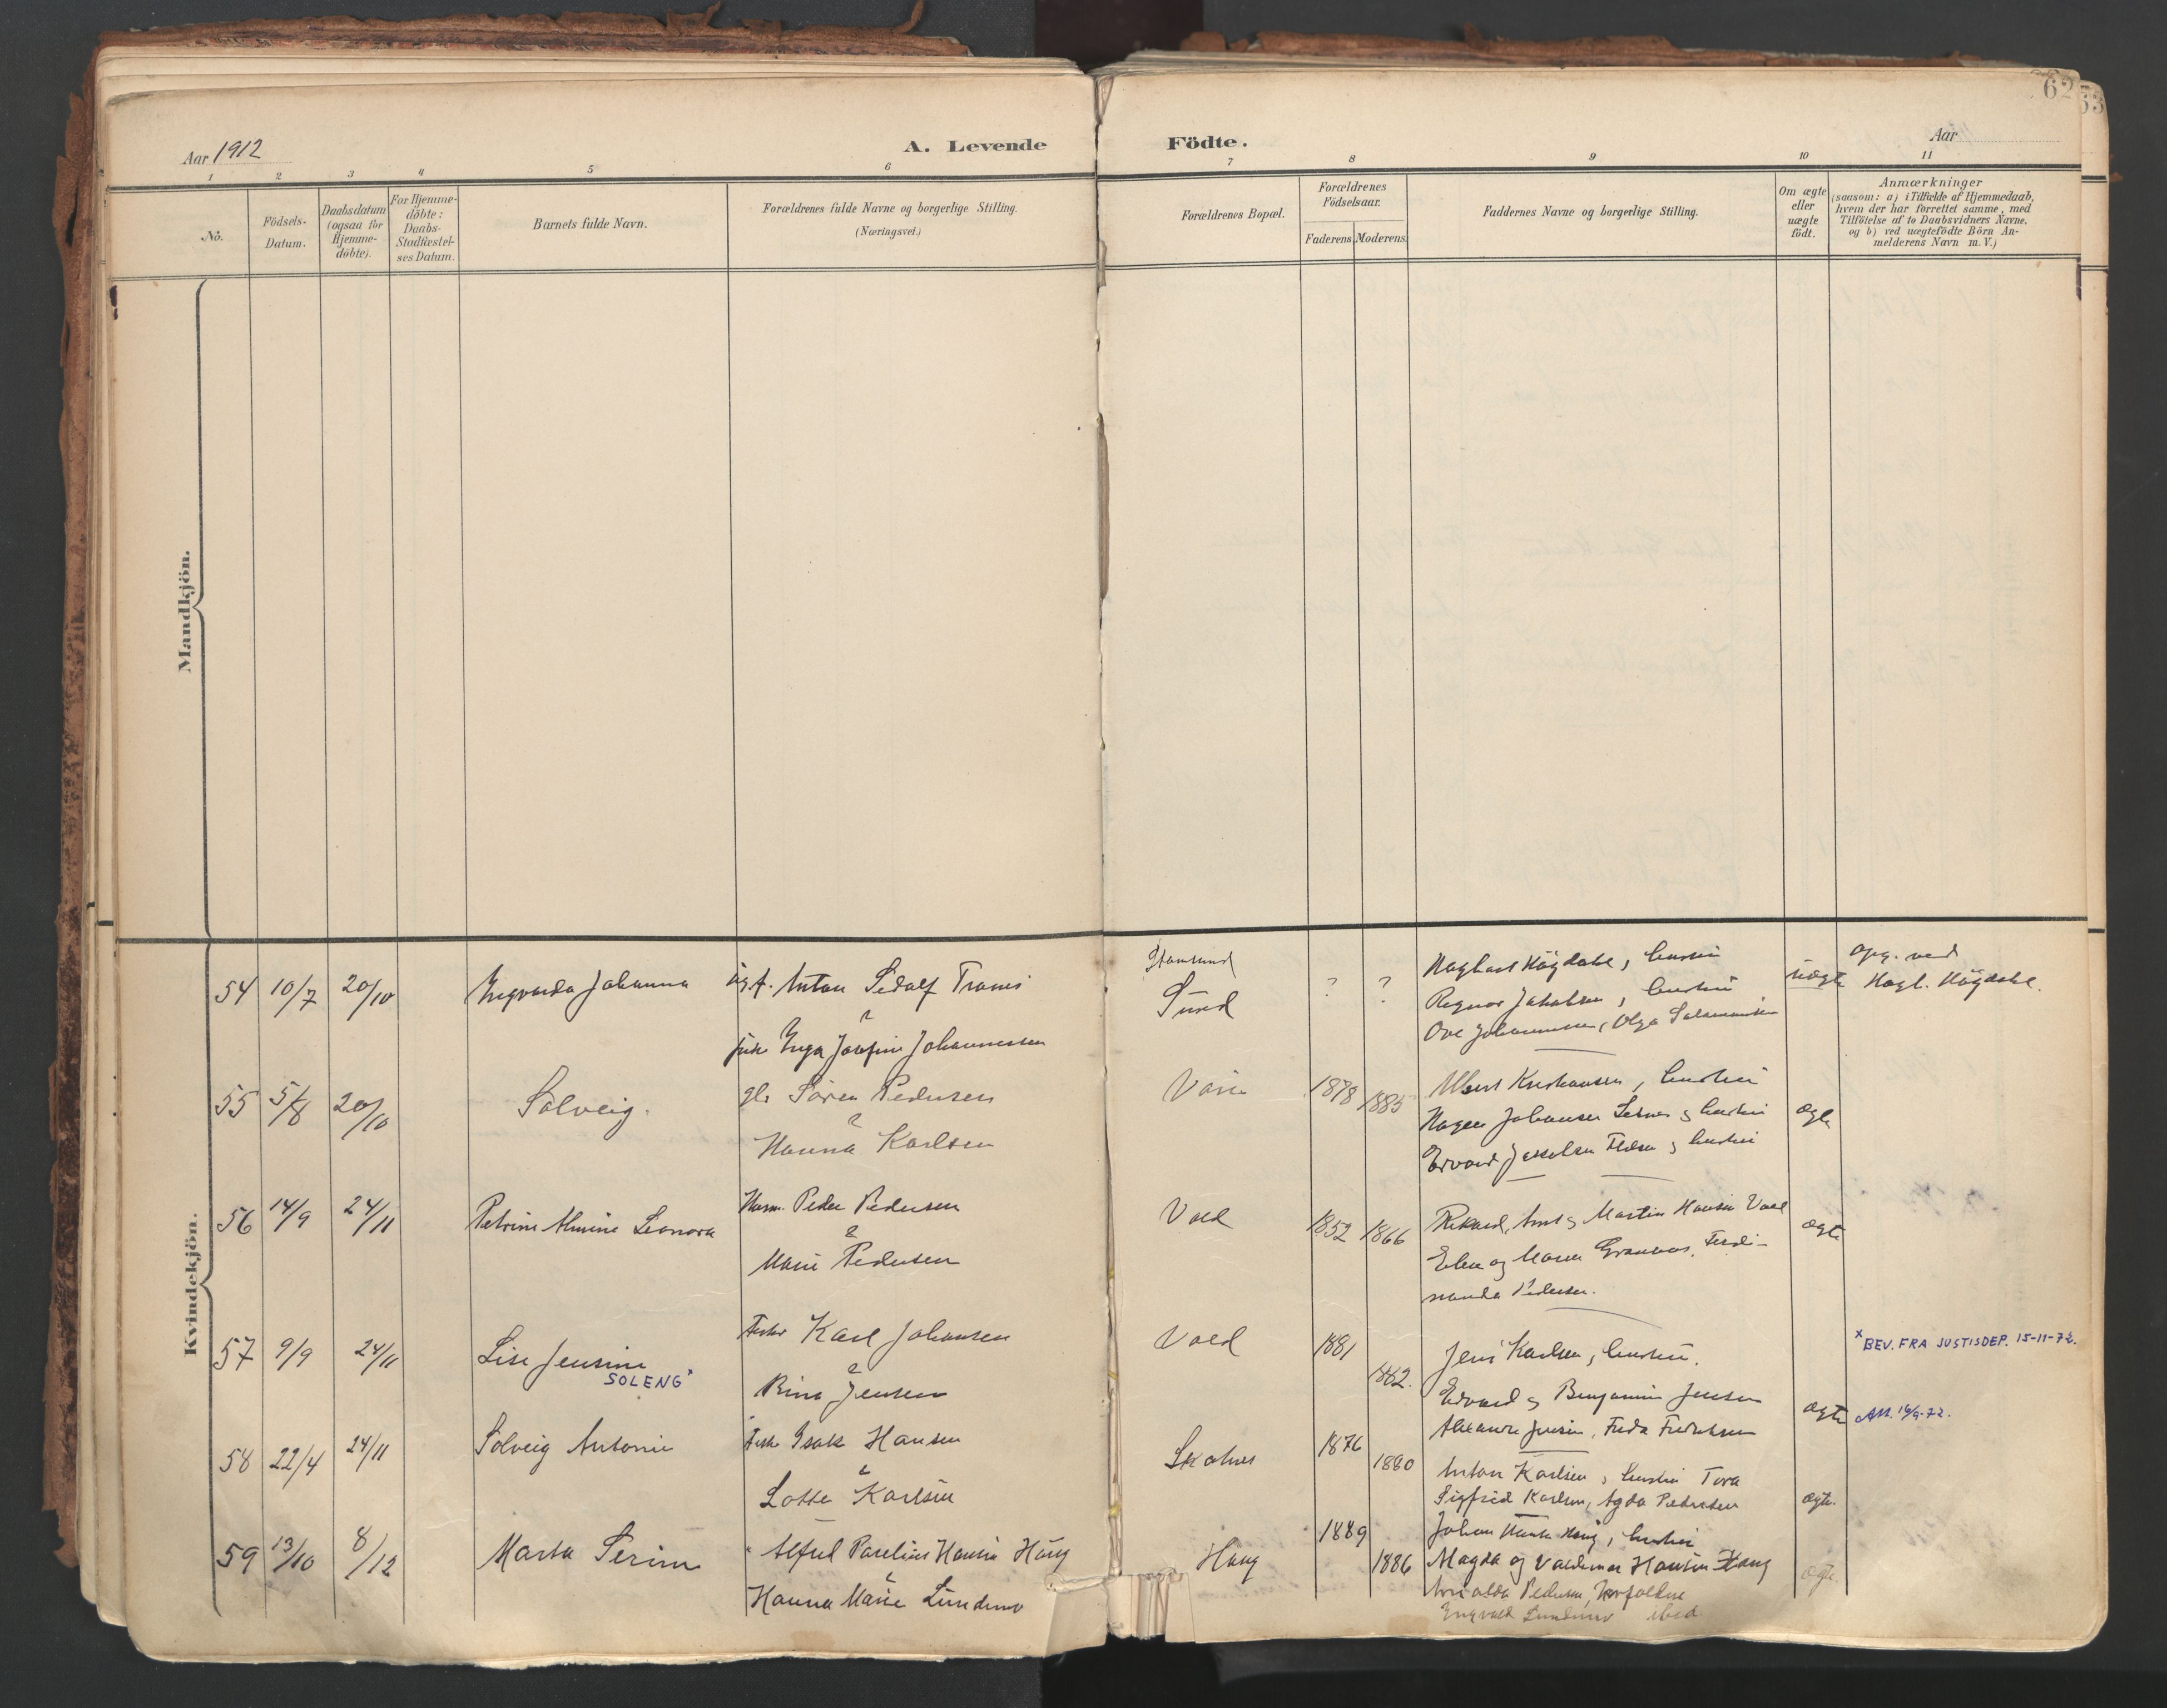 62
63
Aar 1912
A. Levende
Födte.
Aar
1 2 3 4 5 6 7 8 9 10 11
No.
Födsels-
Datum.
Daabsdatum
(ogsaa for
Hjemme-
döbte).
For Hjemme-
döbte:
Daabs-
Stadfæstel-
ses Datum.
Barnets fulde Navn.
Forældrenes fulde Navne og borgerlige Stilling.
(Næringsvei.)
Forældrenes Bopæl.
Forældrenes
Födselsaar.
Faderens Moderens
Faddernes Navne og borgerlige Stilling.
Om ægte
eller
uægte
födt.
Anmærkninger
(saasom: a) i Tilfælde af Hjemmedaab,
hvem der har forrettet samme, med
Tilföielse af to Daabsvidners Navne.
og b) ved uægtefödte Börn An-
melderens Navn m. V.)
Mandkjön.
Kvindekjön.
54 10/7 20/10
Ingvarda Johanna
Anton Sedolf
Inga Josefine Johannessen
Stamsund
Sund
? ?
Hagbart Högdahl, hustru
Ragnar Jakobsen, hustru
Ove Johannessen, Olga Salamonsen
uægte
Opg. ved
Hagb. Högdahl.
55 5/8 20/10
Solveig.
Sören Pedersen
&
Hanna Karlsen
1878 1885
Albert Kristiansen, hustru
Hagen Johansen & hustru
Edvard & hustru
ægte
56 14/9 24/11
Petrine Almine Leonora
Peder Pedersen
&
Marie Pedersen
Vold
1852 1866
Rikard, & Martin Hansen Vold
og Maren Ferdi-
nanda Pedersen.
ægte
57 9/9 24/11
Lise Jensine
SOLENG x
Karl Johansen
&
Rina Jensen
Vold
1881
1882.
Jens Karlsen, hustru.
Edvard & Benjamin Jensen
Jensen, Frida Fredriksen
ægte
x BEV. FRA JUSTISDEP. 15-11-72.
Att. 14/9-72.
58 22/4 24/11
Solveig Antonie
Isak Hansen
&
Lotte Karlsen
Skotnes
1876
1880
Anton Karlsen, hustru Tora
Sigfrid Karlsen, Agda Pedersen
ægte.
59 13/10 8/12
Marta Serine
Alfred Parelius Hansen Haug
&
Hanna Marie Lundemo
Haug
1889
1886
Johan Haug, hustru
Magda og Valdemar Hansen Haug
Pedersen,
Engvald Lundemo ibid
ægte.